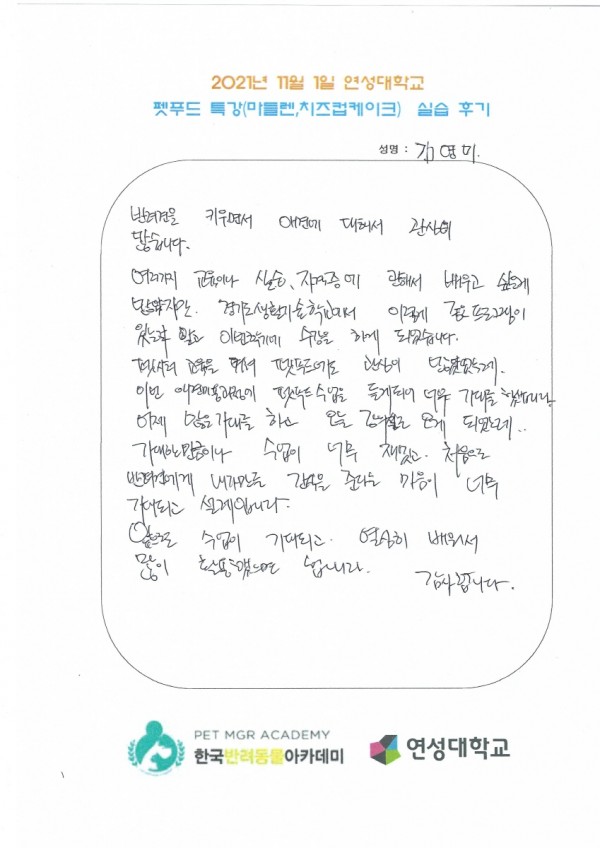 2021년 11월 1일 연성대학교
펫푸드 특강(마들렌,치즈컵케이크) 실습 후기
성명 : 김영미.
반려견을 키우면서 애견에 대해서 관심이
많습니다.
여러가지 교육이나 실습, 자격증에 관해서 배우고 싶은게
많았지만. 경기도생활기술학교에서 이렇게 좋은 프로그램이
있는걸 알고 이번학기에 수강을 하게 되었습니다.
교육을 펫푸드에도 관심이 많았었는데.
이번 애견미용과정에 펫푸드수업을 듣게되어 너무 기대를 했었습니다.
어제 많은기대를 하고 오늘 오게 되었는데..
기대하는만큼이나 수업이 너무 재밌고. 처음으로
반려견에게 내가만든 간식을 준다는 마음이 너무
기대되고 설레입니다.
앞으로 수업이 기대되고. 열심히 배워서
많이 합니다. 감사합니다.
PET MGR ACADEMY
한국반려동물아카데미
연성대학교